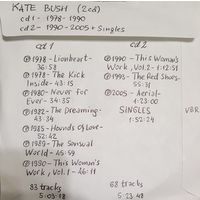 KATE BUSH (2cd)
cd1 - 1978 - 1990
cd2 - 1990-2005 + Singles
cd 1
℗1978 - Lionheart-
36:58
℗1978 - The Kick
Inside - 43:15
℗1980 - Never for
Ever - 34:35
℗1982 - The Dreaming-
43:34
℗1985 - Hounds of Love-
52:42
℗1989 - The Sensual
World - 45:59
℗1990 - This Woman's
Work, Vol.1 - 46:11
83 tracks
5:03:18
cd 2
℗1990 - This Woman's
Work, Vol.2 - 1:12:51
℗1993 - The Red Shoes-
55:31
℗2005 - Aerial-
1:23:00
SINGLES
1:52:24
68 tracks
5:23:48
VBR